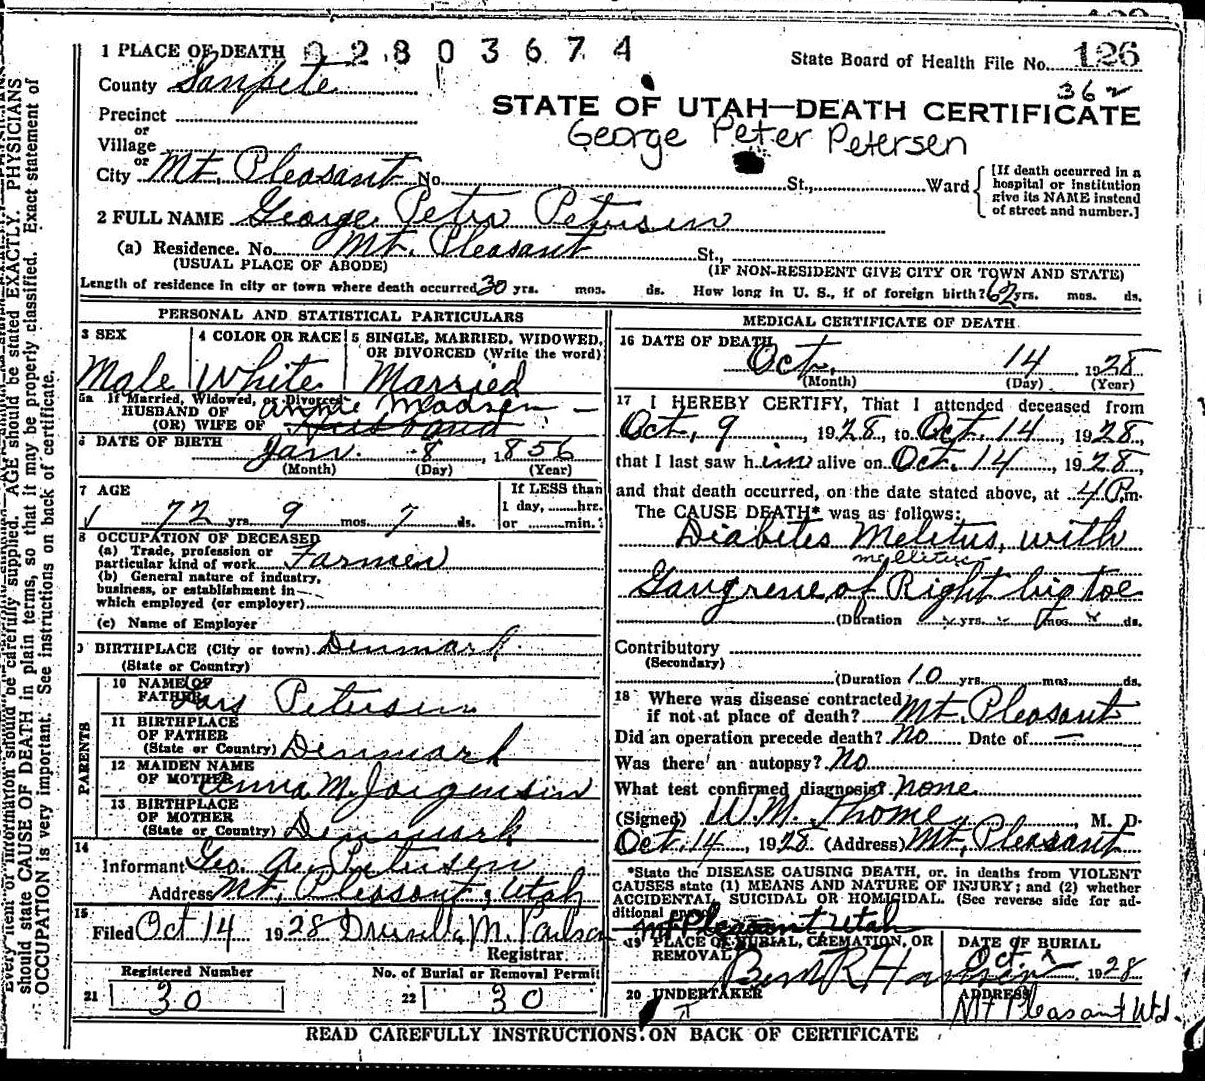 1 PLACE OF DEATH 02803674
State Board of Health File No. 126
County Sanpete
362
STATE OF UTAH—DEATH CERTIFICATE
Precinct
George Peter Petersen
or
Village
or
City Mt. Pleasant No. St., Ward
[If death occurred in a hospital or institution give its NAME instead of street and number.]
2 FULL NAME George Peter Petersen
(a) Residence. No. Mt. Pleasant St.,
(USUAL PLACE OF ABODE) (IF NON-RESIDENT GIVE CITY OR TOWN AND STATE)
Length of residence in city or town where death occurred 30 yrs. mos. ds. How long in U. S., if of foreign birth? 62 yrs. mos. ds.
PERSONAL AND STATISTICAL PARTICULARS
3 SEX 4 COLOR OR RACE 5 SINGLE, MARRIED, WIDOWED, OR DIVORCED (Write the word)
Male White Married
5a If Married, Widowed, or Divorced
HUSBAND OF Annie Madsen
(OR) WIFE OF Husband
6 DATE OF BIRTH Jan. 8, 1856
(Month) (Day) (Year)
7 AGE If LESS than
1 day, hrs.
72 yrs. 9 mos. 7 ds. or min.?
8 OCCUPATION OF DECEASED
(a) Trade, profession or
particular kind of work Farmer
(b) General nature of industry,
business, or establishment in
which employed (or employer)
(c) Name of Employer
9 BIRTHPLACE (City or town) Denmark
(State or Country)
PARENTS
10 NAME OF
FATHER Lars Petersen
11 BIRTHPLACE
OF FATHER
(State or Country) Denmark
12 MAIDEN NAME
OF MOTHER Anna M. Jorgensen
13 BIRTHPLACE
OF MOTHER
(State or Country) Denmark
14
Informant Geo. A. Petersen
Address Mt. Pleasant, Utah
15
Filed Oct 14 1928 M.
Registrar
Registered Number No. of Burial or Removal Permit
21 30 22 30
MEDICAL CERTIFICATE OF DEATH
16 DATE OF DEATH
Oct. 14 1928
(Month) (Day) (Year)
17 I HEREBY CERTIFY, That I attended deceased from
Oct. 9, 1928, to Oct. 14, 1928,
that I last saw him alive on Oct. 14, 1928,
and that death occurred, on the date stated above, at 4 P.m.
The CAUSE DEATH* was as follows:
Diabites Melitus, with
mellitus
Gangrene of Right big toe
(Duration yrs. mos. ds.
Contributory
(Secondary)
(Duration 10 yrs. mos. ds.
18 Where was disease contracted
if not at place of death? Mt. Pleasant
Did an operation precede death? No Date of —
Was there an autopsy? No
What test confirmed diagnosis? none
(Signed) W.M. Thome, M. D.
Oct. 14, 1928 (Address) Mt. Pleasant
*State the DISEASE CAUSING DEATH, or, in deaths from VIOLENT
CAUSES state (1) MEANS AND NATURE OF INJURY; and (2) whether
ACCIDENTAL, SUICIDAL OR HOMICIDAL. (See reverse side for ad-
ditional space.)
Mt Pleasant, Utah
19 PLACE OF BURIAL, CREMATION, OR
REMOVAL
DATE OF BURIAL
Oct. 1928
20 UNDERTAKER
ADDRESS
Mt Pleasant Utd.
READ CAREFULLY INSTRUCTIONS ON BACK OF CERTIFICATE
Every item of information should be carefully supplied. AGE should be stated EXACTLY. PHYSICIANS
should state CAUSE OF DEATH in plain terms, so that it may be properly classified. Exact statement of
OCCUPATION is very important. See instructions on back of certificate.